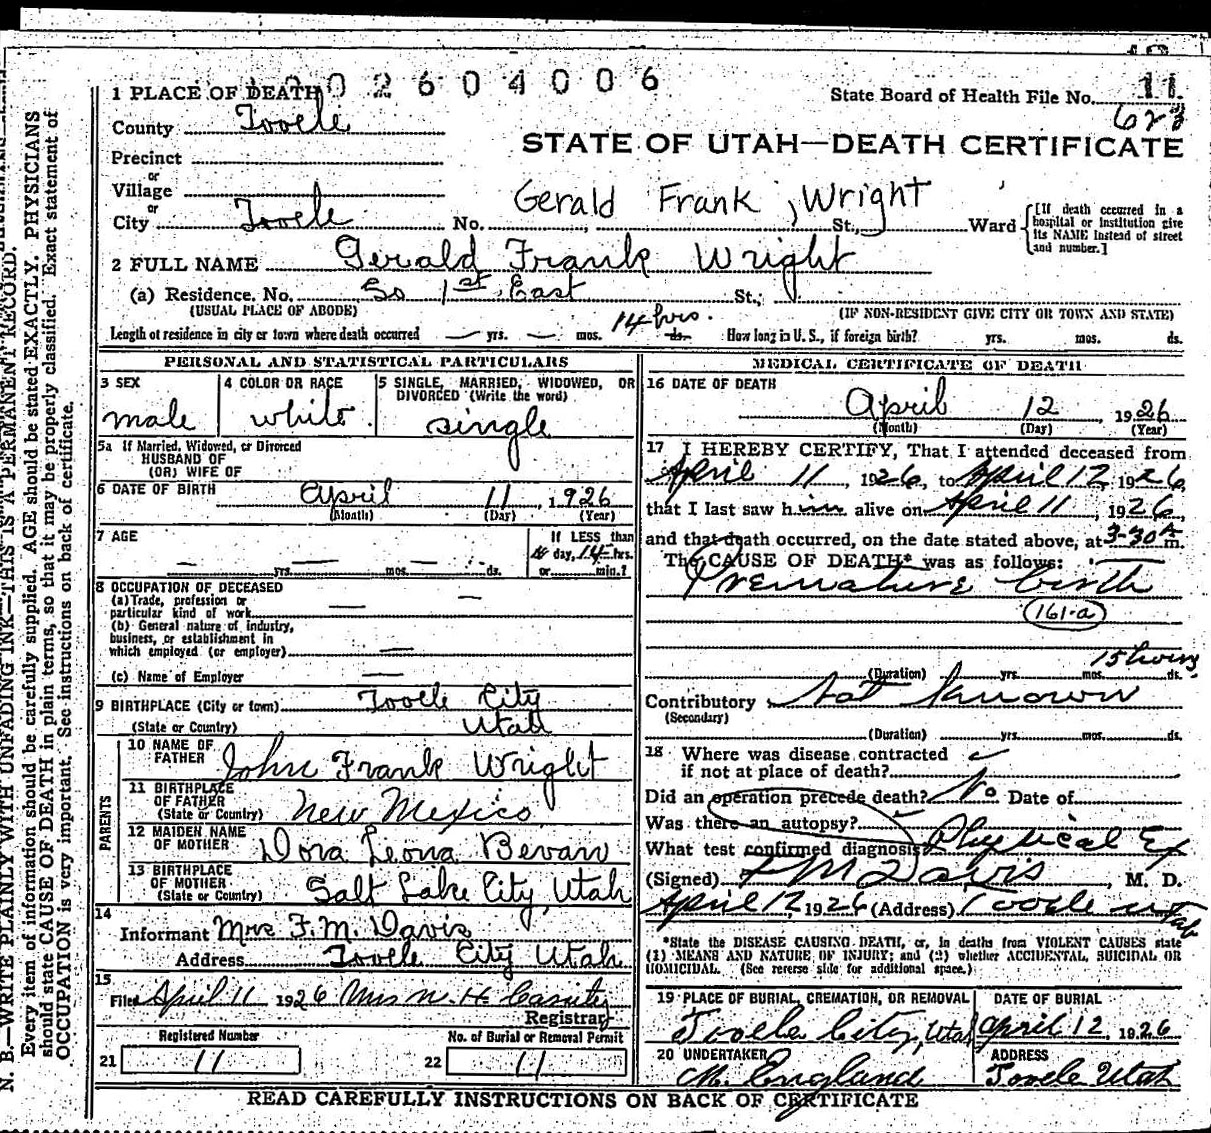 002604006
1 PLACE OF DEATH
State Board of Health File No. 11
628
County Tooele
STATE OF UTAH—DEATH CERTIFICATE
Precinct
or
Village
or
City Tooele No. St., Ward
Gerald Frank Wright
[If death occurred in a hospital or institution give its NAME instead of street and number.]
2 FULL NAME Gerald Frank Wright
(a) Residence. No. So 1st East St.,
(USUAL PLACE OF ABODE)
(IF NON-RESIDENT GIVE CITY OR TOWN AND STATE)
Length of residence in city or town where death occurred — yrs. — mos. 14 hrs. ds. How long in U. S., if foreign birth? yrs. mos. ds.
PERSONAL AND STATISTICAL PARTICULARS
3 SEX
male
4 COLOR OR RACE
white
5 SINGLE, MARRIED, WIDOWED, OR DIVORCED (Write the word)
single
5a If Married, Widowed, or Divorced
HUSBAND OF
(OR) WIFE OF
6 DATE OF BIRTH April 11, 1926
(Month) (Day) (Year)
7 AGE
— yrs. — mos. — ds.
If LESS than
1 day, 14 hrs.
or min.?
8 OCCUPATION OF DECEASED
(a) Trade, profession or
particular kind of work — —
(b) General nature of industry,
business, or establishment in
which employed (or employer) —
(c) Name of Employer —
9 BIRTHPLACE (City or town) Tooele City
(State or Country) Utah
PARENTS
10 NAME OF FATHER John Frank Wright
11 BIRTHPLACE OF FATHER (State or Country) New Mexico
12 MAIDEN NAME OF MOTHER Dora Leona Bevan
13 BIRTHPLACE OF MOTHER (State or Country) Salt Lake City, Utah
14
Informant Mrs F. M. Davis
Address Tooele City Utah
15
Filed April 11 1926 Mrs N. H.
Registrar
Registered Number
21 11
No. of Burial or Removal Permit
22 11
MEDICAL CERTIFICATE OF DEATH
16 DATE OF DEATH
April 12 1926
(Month) (Day) (Year)
17 I HEREBY CERTIFY, That I attended deceased from
April 11, 1926, to April 12, 1926,
that I last saw him alive on April 11, 1926,
and that death occurred, on the date stated above, at 3-30 A m.
The CAUSE OF DEATH* was as follows:
Premature birth
161-a
15 hours
(Duration) yrs. mos. ds.
Contributory Not known
(Secondary)
(Duration) yrs. mos. ds.
18 Where was disease contracted
if not at place of death?
Did an operation precede death? No Date of
Was there an autopsy?
What test confirmed diagnosis? Physical Ex
(Signed) F M Davis, M. D.
April 12, 1926 (Address) Tooele Utah
*State the DISEASE CAUSING DEATH, or, in deaths from VIOLENT CAUSES state
(1) MEANS AND NATURE OF INJURY; and (2) whether ACCIDENTAL, SUICIDAL OR
HOMICIDAL. (See reverse side for additional space.)
19 PLACE OF BURIAL, CREMATION, OR REMOVAL
Tooele City, Utah
DATE OF BURIAL
April 12, 1926
20 UNDERTAKER
M. England
ADDRESS
Tooele Utah
READ CAREFULLY INSTRUCTIONS ON BACK OF CERTIFICATE
N. B.—WRITE PLAINLY WITH UNFADING INK—THIS IS A PERMANENT RECORD.
Every item of information should be carefully supplied. AGE should be stated EXACTLY. PHYSICIANS
should state CAUSE OF DEATH in plain terms, so that it may be properly classified. Exact statement of
OCCUPATION is very important. See instructions on back of certificate.